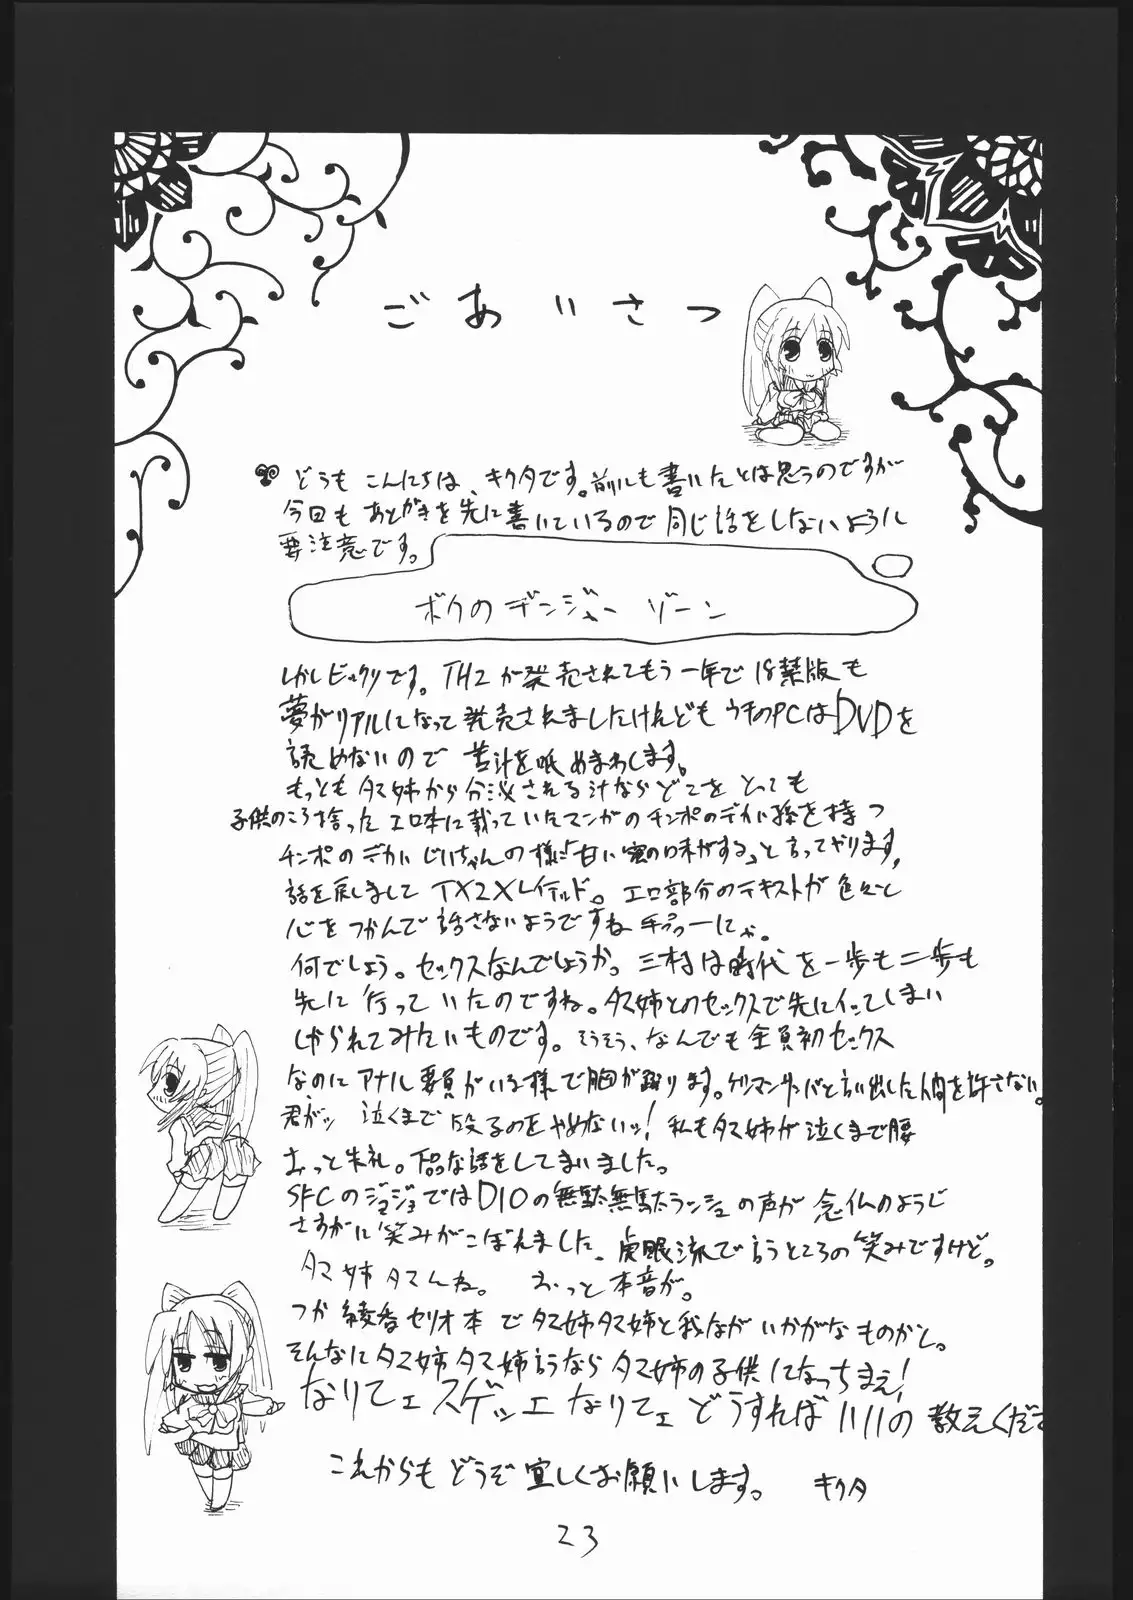 ごあいさつ
どうも こんにちは、キクタです。前にも書いたとは思うのですが
今回も あとがきを先に書いているので 同じ話をしないように
要注意です。
ボクのデンジャー ゾーン
しかしビックリです。TH2が発売されてもう一年で18禁版も
夢がリアルになって発売されましたけれども ウチのPCはDVDを
読めないので 苦汁を舐めまわします。
もっとも タマ姉から分泌される汁ならどこをとっても
子供のころ拾ったエロ本に載っていたマンガのチンポのデカい孫を持つ
チンポのデカいじいちゃんの様に「甘い蜜の味がする」と言ってやります。
話を戻しまして TX2Xレイテルド。エロ部分のテキストが色々と
心をつかんで話さないようですね
何でしょう。セックスなんでしょうか。三村は時代を一歩も二歩も
先に行っていたのですね。タマ姉とのセックスで先にイッてしまい
しかられてみたいものです。そうそう、なんでも全員初セックス
なのにアナル要員がいる様で胸が踊ります。ゲリマンサンバと言い出した人間を許さない。
君がッ 泣くまで 殴るのをやめないッ!私もタマ姉が泣くまで腰
おっと失礼。下品な話をしてしまいました。
SFCのジョジョではDIOの無駄無駄ラッシュの声が 念仏のようじ
さすがに笑みがこぼれました、虎眼流で言うところの笑みですけど。
タマ姉タマんね。 おっと本音が。
つか綾香セリオ本でタマ姉タマ姉と我ながらいかがなものかと。
そんなにタマ姉タマ姉言うならタマ姉の子供になっちまえ!
なりてェスゲッエなりてェ どうすればいいの 教えくださ
これからもどうぞ宜しくお願いします。 キクタ
23